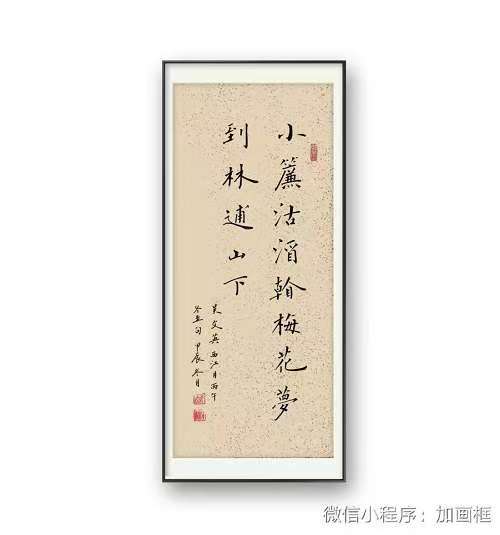 小簾沽酒看梅花夢
到林逋山下
吴文英西江月丙午
冬至句甲辰冬月
微信小程序：加画框